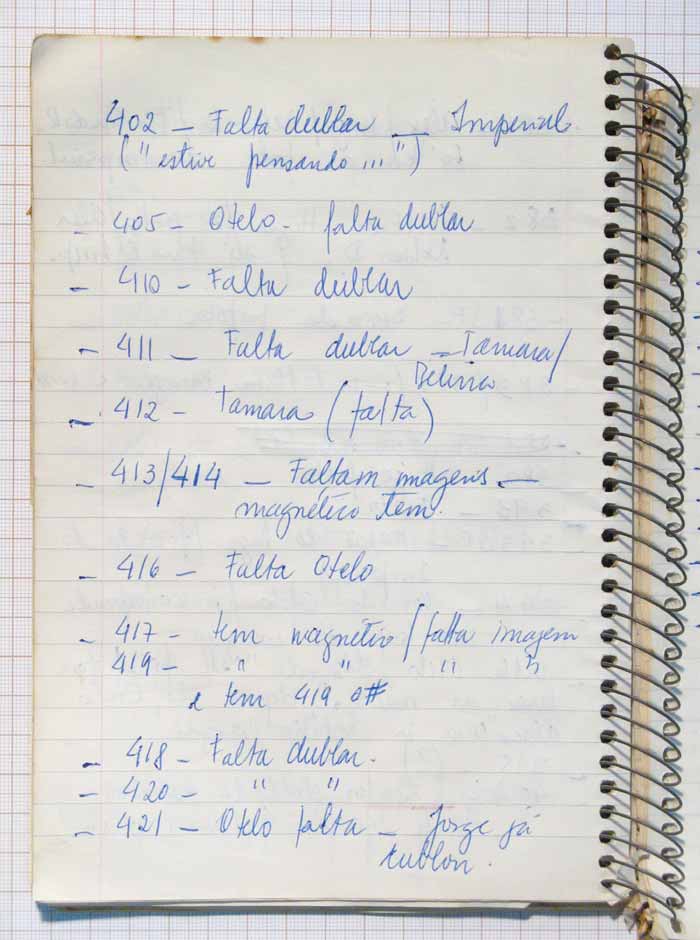 402 — Falta dublar — Imperial.
("estive pensando ...")
- 405 - Otelo - falta dublar
- 410 - Falta dublar
- 411 — Falta dublar — Tamara/
Belisa
- 412 - Tamara (falta)
- 413/414 — Faltam imagens —
magnético tem.
- 416 — Falta Otelo
- 417 - tem magnético / falta imagem
419 - " " " "
e tem 419 off
- 418 - Falta dublar.
- 420 - " "
- 421 - Otelo falta - Jorge já
dublou.